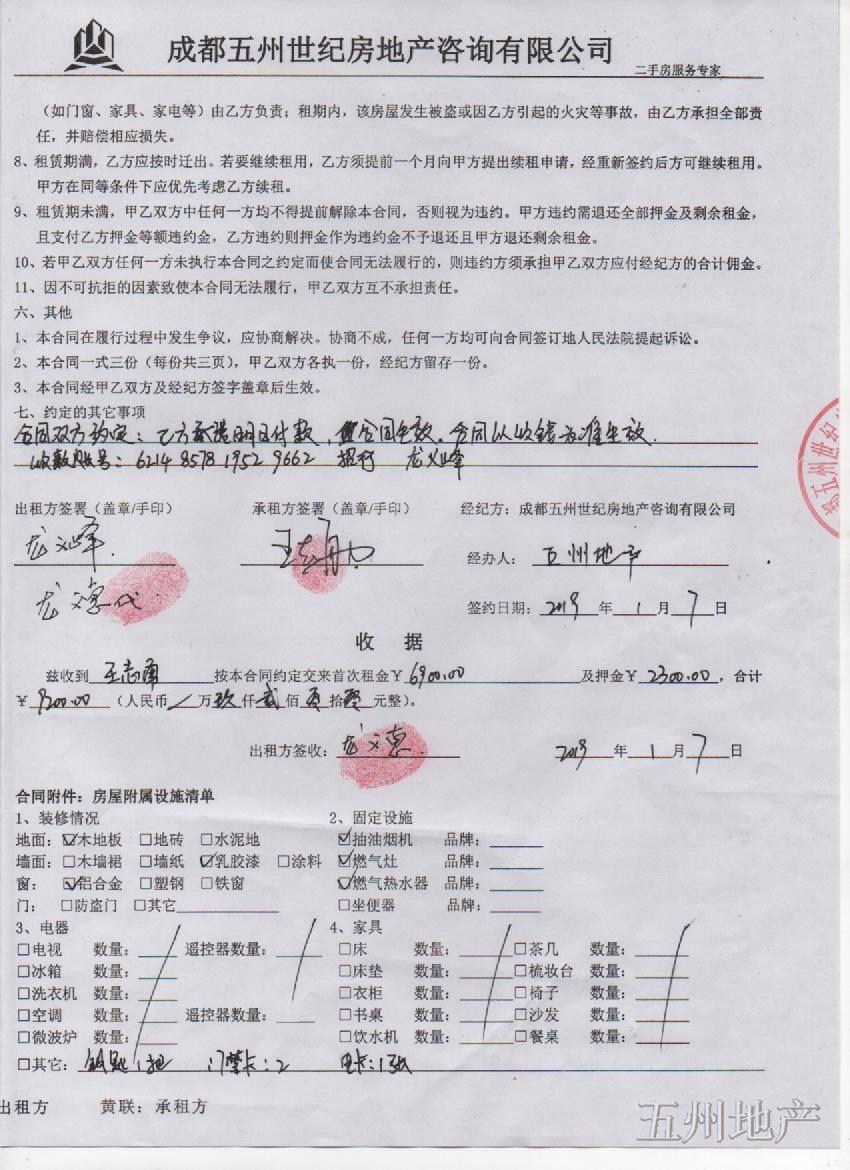 成都五州世纪房地产咨询有限公司
二手房服务专家
（如门窗、家具、家电等）由乙方负责；租期内，该房屋发生被盗或因乙方引起的火灾等事故，由乙方承担全部责
任，并赔偿相应损失。
8、租赁期满，乙方应按时迁出。若要继续租用，乙方须提前一个月向甲方提出续租申请，经重新签约后方可继续租用。
甲方在同等条件下应优先考虑乙方续租。
9、租赁期未满，甲乙双方中任何一方均不得提前解除本合同，否则视为违约。甲方违约需退还全部押金及剩余租金，
且支付乙方押金等额违约金，乙方违约则押金作为违约金不予退还且甲方退还剩余租金。
10、若甲乙双方任何一方未执行本合同之约定而使合同无法履行的，则违约方须承担甲乙双方应付经纪方的合计佣金。
11、因不可抗拒的因素致使本合同无法履行，甲乙双方互不承担责任。
六、其他
1、本合同在履行过程中发生争议，应协商解决。协商不成，任何一方均可向合同签订地人民法院提起诉讼。
2、本合同一式三份（每份共三页），甲乙双方各执一份，经纪方留存一份。
3、本合同经甲乙双方及经纪方签字盖章后生效。
七、约定的其它事项
合同双方约定：乙方承诺明日付款，合同生效。合同以收钱为准生效.
收款账号：6214 8578 1952 9662 招行 龙义峰
出租方签署（盖章/手印） 承租方签署（盖章/手印） 经纪方：成都五州世纪房地产咨询有限公司
龙义峰. 经办人：五州地产
龙义惠代. 签约日期：2019 年 1 月 7 日
五州世纪
收 据
兹收到 王志勇 按本合同约定交来首次租金￥6900.00 及押金￥2300.00，合计
￥9200.00（人民币 / 万玖仟贰佰零拾零元整）。
出租方签收：龙义惠 2019 年 1 月 7 日
合同附件：房屋附属设施清单
1、装修情况 2、固定设施
地面：☑木地板 □地砖 □水泥地 ☑抽油烟机 品牌：
墙面：□木墙裙 □墙纸 ☑乳胶漆 □涂料 ☑燃气灶 品牌：
窗： ☑铝合金 □塑钢 □铁窗 ☑燃气热水器 品牌：
门： □防盗门 □其它 □坐便器 品牌：
3、电器 4、家具
□电视 数量： 遥控器数量： □床 数量： □茶几 数量：
□冰箱 数量： □床垫 数量： □梳妆台 数量：
□洗衣机 数量： □衣柜 数量： □椅子 数量：
□空调 数量： 遥控器数量： □书桌 数量： □沙发 数量：
□微波炉 数量： □饮水机 数量： □餐桌 数量：
□其它：钥匙1把 门禁卡：2 电卡：1张
出租方 黄联：承租方
五州地产